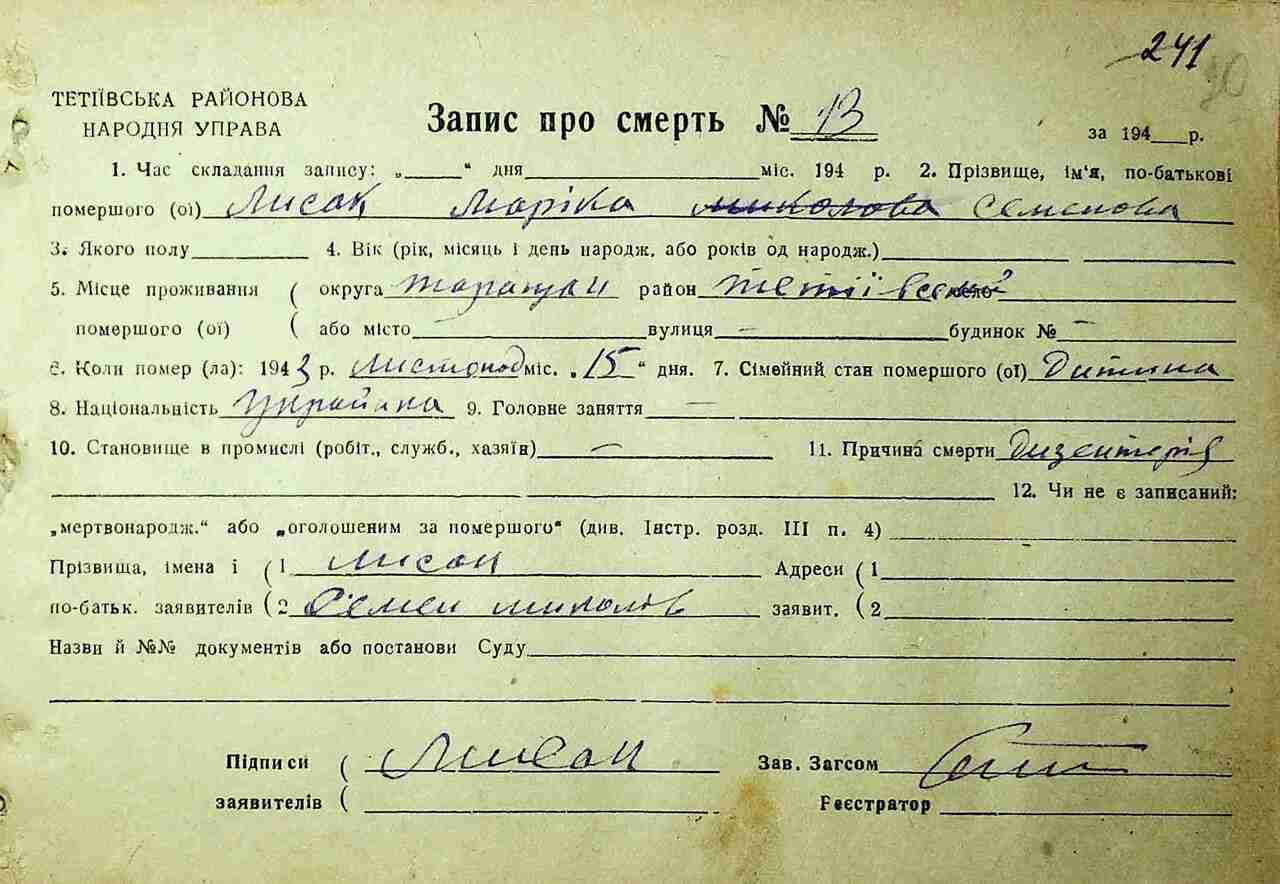 241
ТЕТІЇВСЬКА РАЙОНОВА
НАРОДНЯ УПРАВА
Запис про смерть № 13
за 194 р.
1. Час складання запису: „ “ дня міс. 194 р. 2. Прізвище, ім'я, по-батькові
помершого (ої) Лисак Маріка Миколова Семенова
3. Якого полу 4. Вік (рік, місяць і день народж. або років од народж.)
5. Місце проживання ( округа Таращан район Тетіївський село
помершого (ої) ( або місто — вулиця — будинок № —
6. Коли помер (ла): 1943 р. листопад міс. „ 15 “ дня. 7. Сімейний стан помершого (ої) Дитина
8. Національність Українка 9. Головне заняття —
10. Становище в промислі (робіт., служб., хазяїн) — 11. Причина смерти Дизентерія
12. Чи не є записаний:
„мертвонародж.“ або „оголошеним за помершого“ (див. Інстр. розд. III п. 4)
Прізвища, імена і ( 1 Лисак Адреси ( 1
по-батьк. заявителів ( 2 Семен миколів заявит. ( 2
Назви й №№ документів або постанови Суду
Підписи ( Лисак Зав. Загсом
заявителів ( Реєстратор